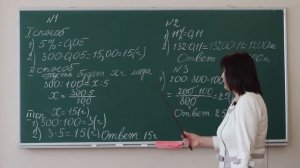 №1
I способ
1) 5% = 0,05
2) 300·0,05 = 15,00 = 15 (г)
II способ
пусть будет x г мёда
300:100 = x:5
x = 300·5
100
x = 15 (г)
III сп.
1) 300:100 = 3 (г)
2) 3·5 = 15 (г) Ответ 15г
№2
1) 11% = 0,11
2) 132:0,11 = 13200:11 = 1200
Ответ
№3
200·300
100
Ответ